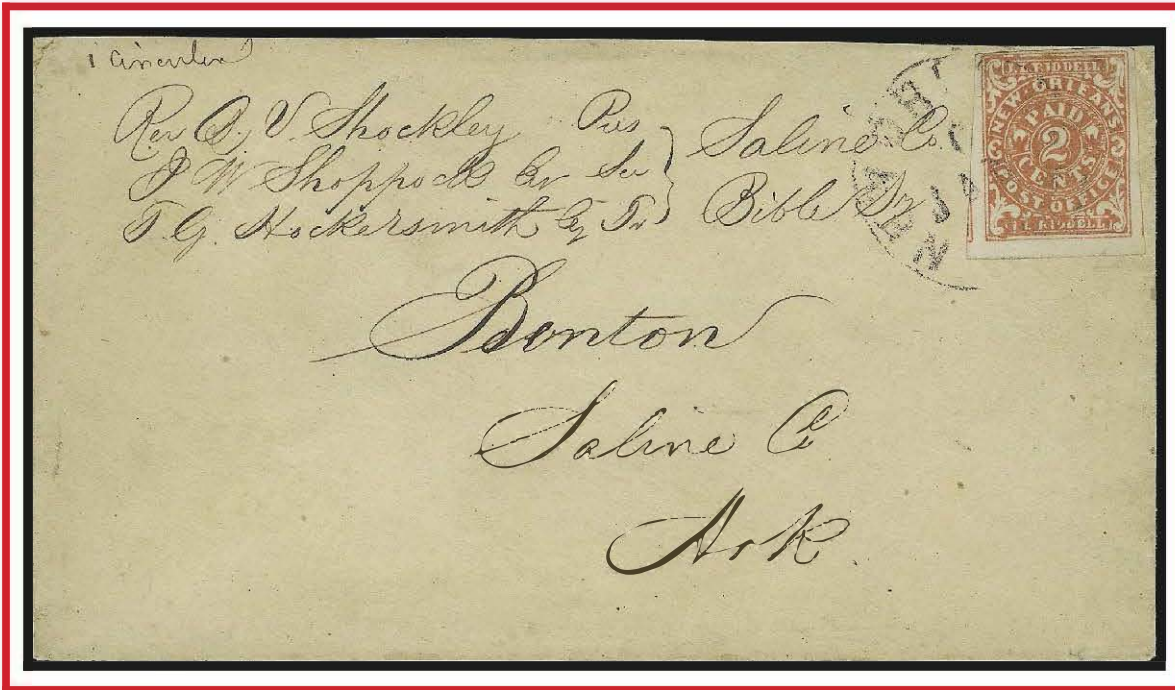 1 Circular
Rev B, V Shockley Pres
J W Shoppock Cor Sec
T. G. Hockersmith Esq Tr
Saline Co.
Bible Sy
Benton
Saline Co
Ark.
J.L. RIDDELL
NEW ORLEANS
PAID
2
CENTS
POST OFFICE
J.L. RIDDELL